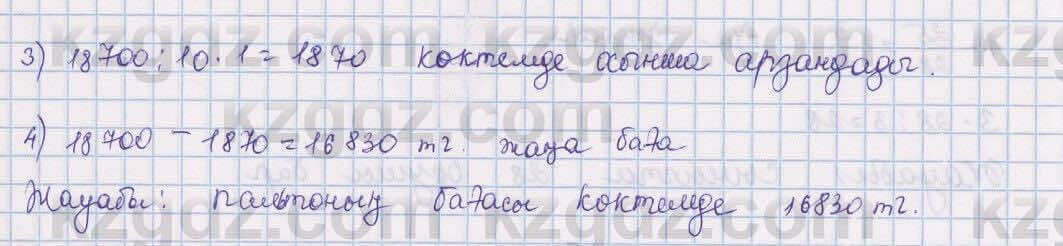 3) 18700 : 10 · 1 = 1870 көктемде осынша арзандады.
4) 18 700 - 1870 = 16 830 тг. жаңа баға
Жауабы: пальтоның бағасы көктемде 16830 тг.
kzgdz.com